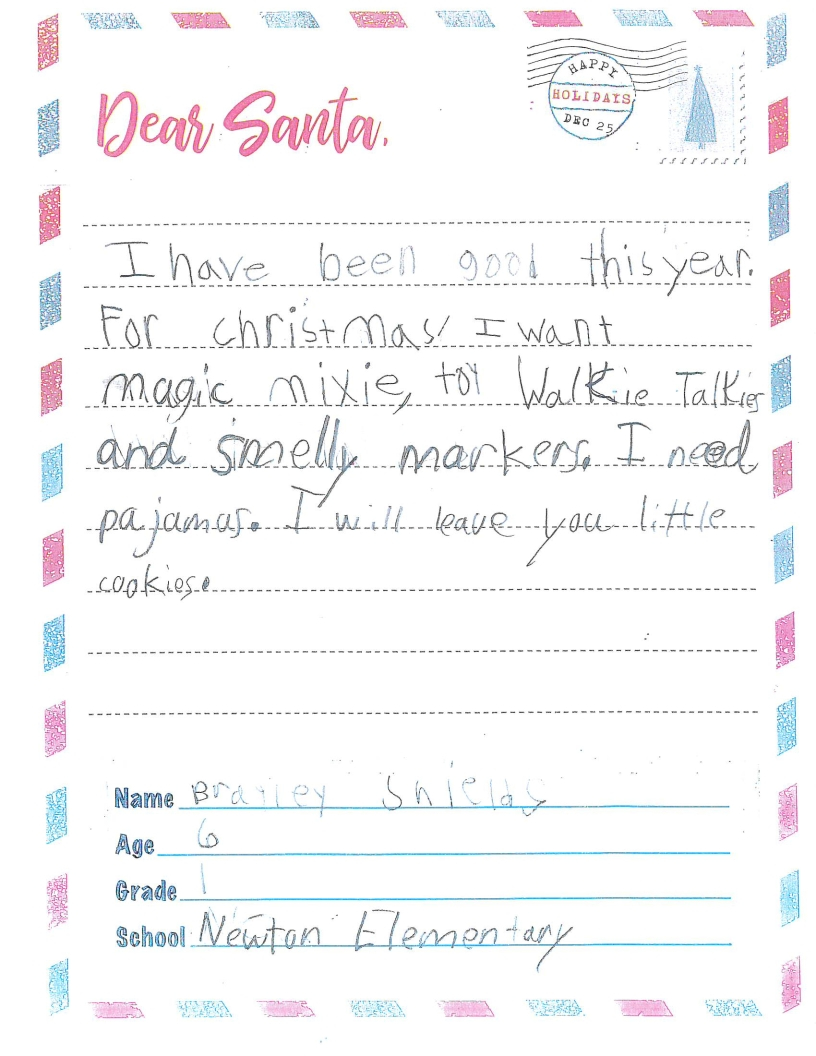 HAPPY
HOLIDAYS
DEC 25
Dear Santa,
I have been good this year.
For christmas I want
magic mixie, toy Walkie Talkies
and smelly markers. I need
pajamas. I will leave you little
cookies.
Name Shields
Age 6
Grade 1
School Newton Elementary